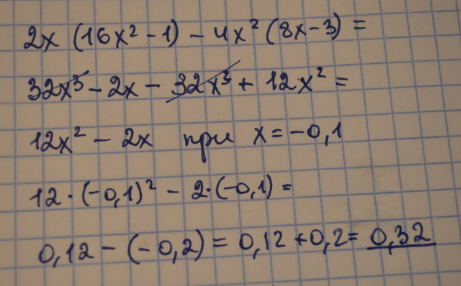 2x (16x² - 1) - 4x² (8x - 3) =
32x³ - 2x - 32x³ + 12x² =
12x² - 2x при x = -0,1
12 · (-0,1)² - 2 · (-0,1) =
0,12 - (-0,2) = 0,12 + 0,2 = 0,32